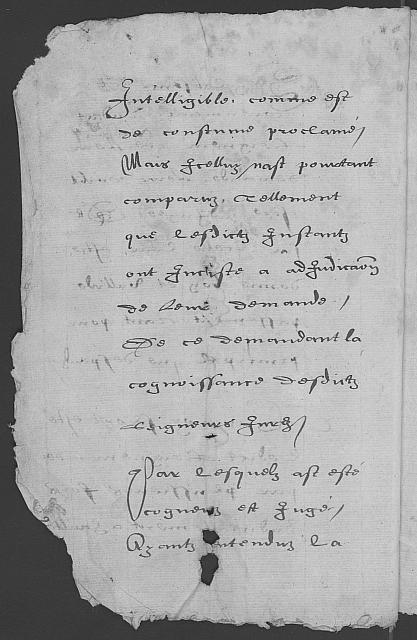 Intelligible, comme est
de coustume proclamé /
Mais Icelluy nast pourtant
comparuz, Tellement
que Lesdictz Instantz
ont Incisté a adjudicaõn
de leur demande /
De ce demandant la
cognoissance desdictz
Seigneurs Jurez /
Par Lesquelz ast esté
cogneuz et Jugé /
Ayantz entenduz La